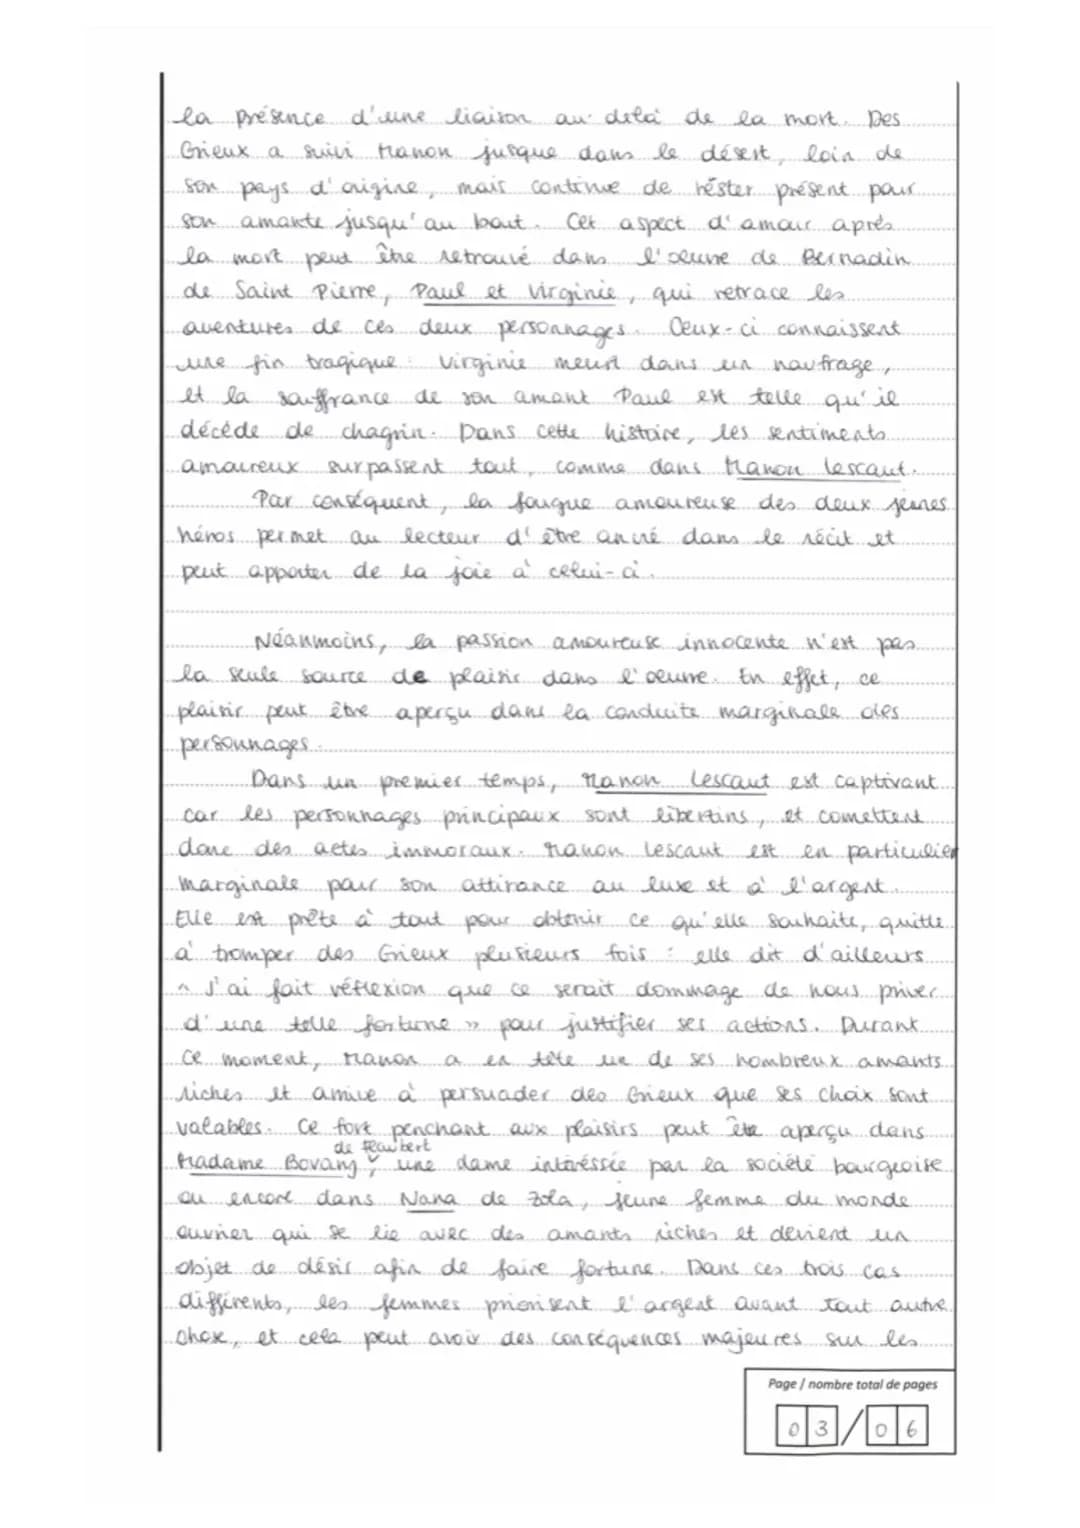 la présence d'une liaison au delà de la mort. Des
Grieux a suivi Manon jusque dans le désert, loin de
son pays d'origine, mais continue de réster présent pour
son amante jusqu'au bout. Cet aspect d'amour après
la mort peut être retrouvé dans l'oeuvre de Bernadin
de Saint Pierre, Paul et Virginie, qui retrace les
aventures de ces deux personnages. Ceux-ci connaissent
une fin tragique : Virginie meurt dans un naufrage,
et la souffrance de son amant Paul est telle qu'il
décède de chagrin. Dans cette histoire, les sentiments
amoureux surpassent tout, comme dans Manon Lescaut.
Par conséquent, la fougue amoureuse des deux jeunes
héros permet au lecteur d'être ancré dans le récit et
peut apporter de la joie à celui-ci.
Néanmoins, la passion amoureuse innocente n'est pas
la seule source de plaisir dans l'oeuvre. En effet, ce
plaisir peut être aperçu dans la conduite marginale des
personnages.
Dans un premier temps, Manon Lescaut est captivant
car les personnages principaux sont libertins, et comettent
donc des actes immoraux. Manon Lescaut est en particulier
marginale pour son attirance au luxe et à l'argent.
Elle est prête à tout pour obtenir ce qu'elle souhaite, quitte
à tromper des Grieux plusieurs fois : elle dit d'ailleurs
« J'ai fait réflexion que ce serait dommage de nous priver
d'une telle fortune » pour justifier ses actions. Durant
ce moment, Manon a en tête un de ses nombreux amants
riches et arrive à persuader des Grieux que ses choix sont
valables. Ce fort penchant aux plaisirs peut être aperçu dans
de Flaubert
Madame Bovary, une dame intéréssée par la société bourgeoise
ou encore dans Nana de Zola, jeune femme du monde
ouvrier qui se lie avec des amants riches et devient un
objet de désir afin de faire fortune. Dans ces trois cas
différents, les femmes priorisent l'argent avant tout autre
chose, et cela peut avoir des conséquences majeures sur les
Page / nombre total de pages
03/06